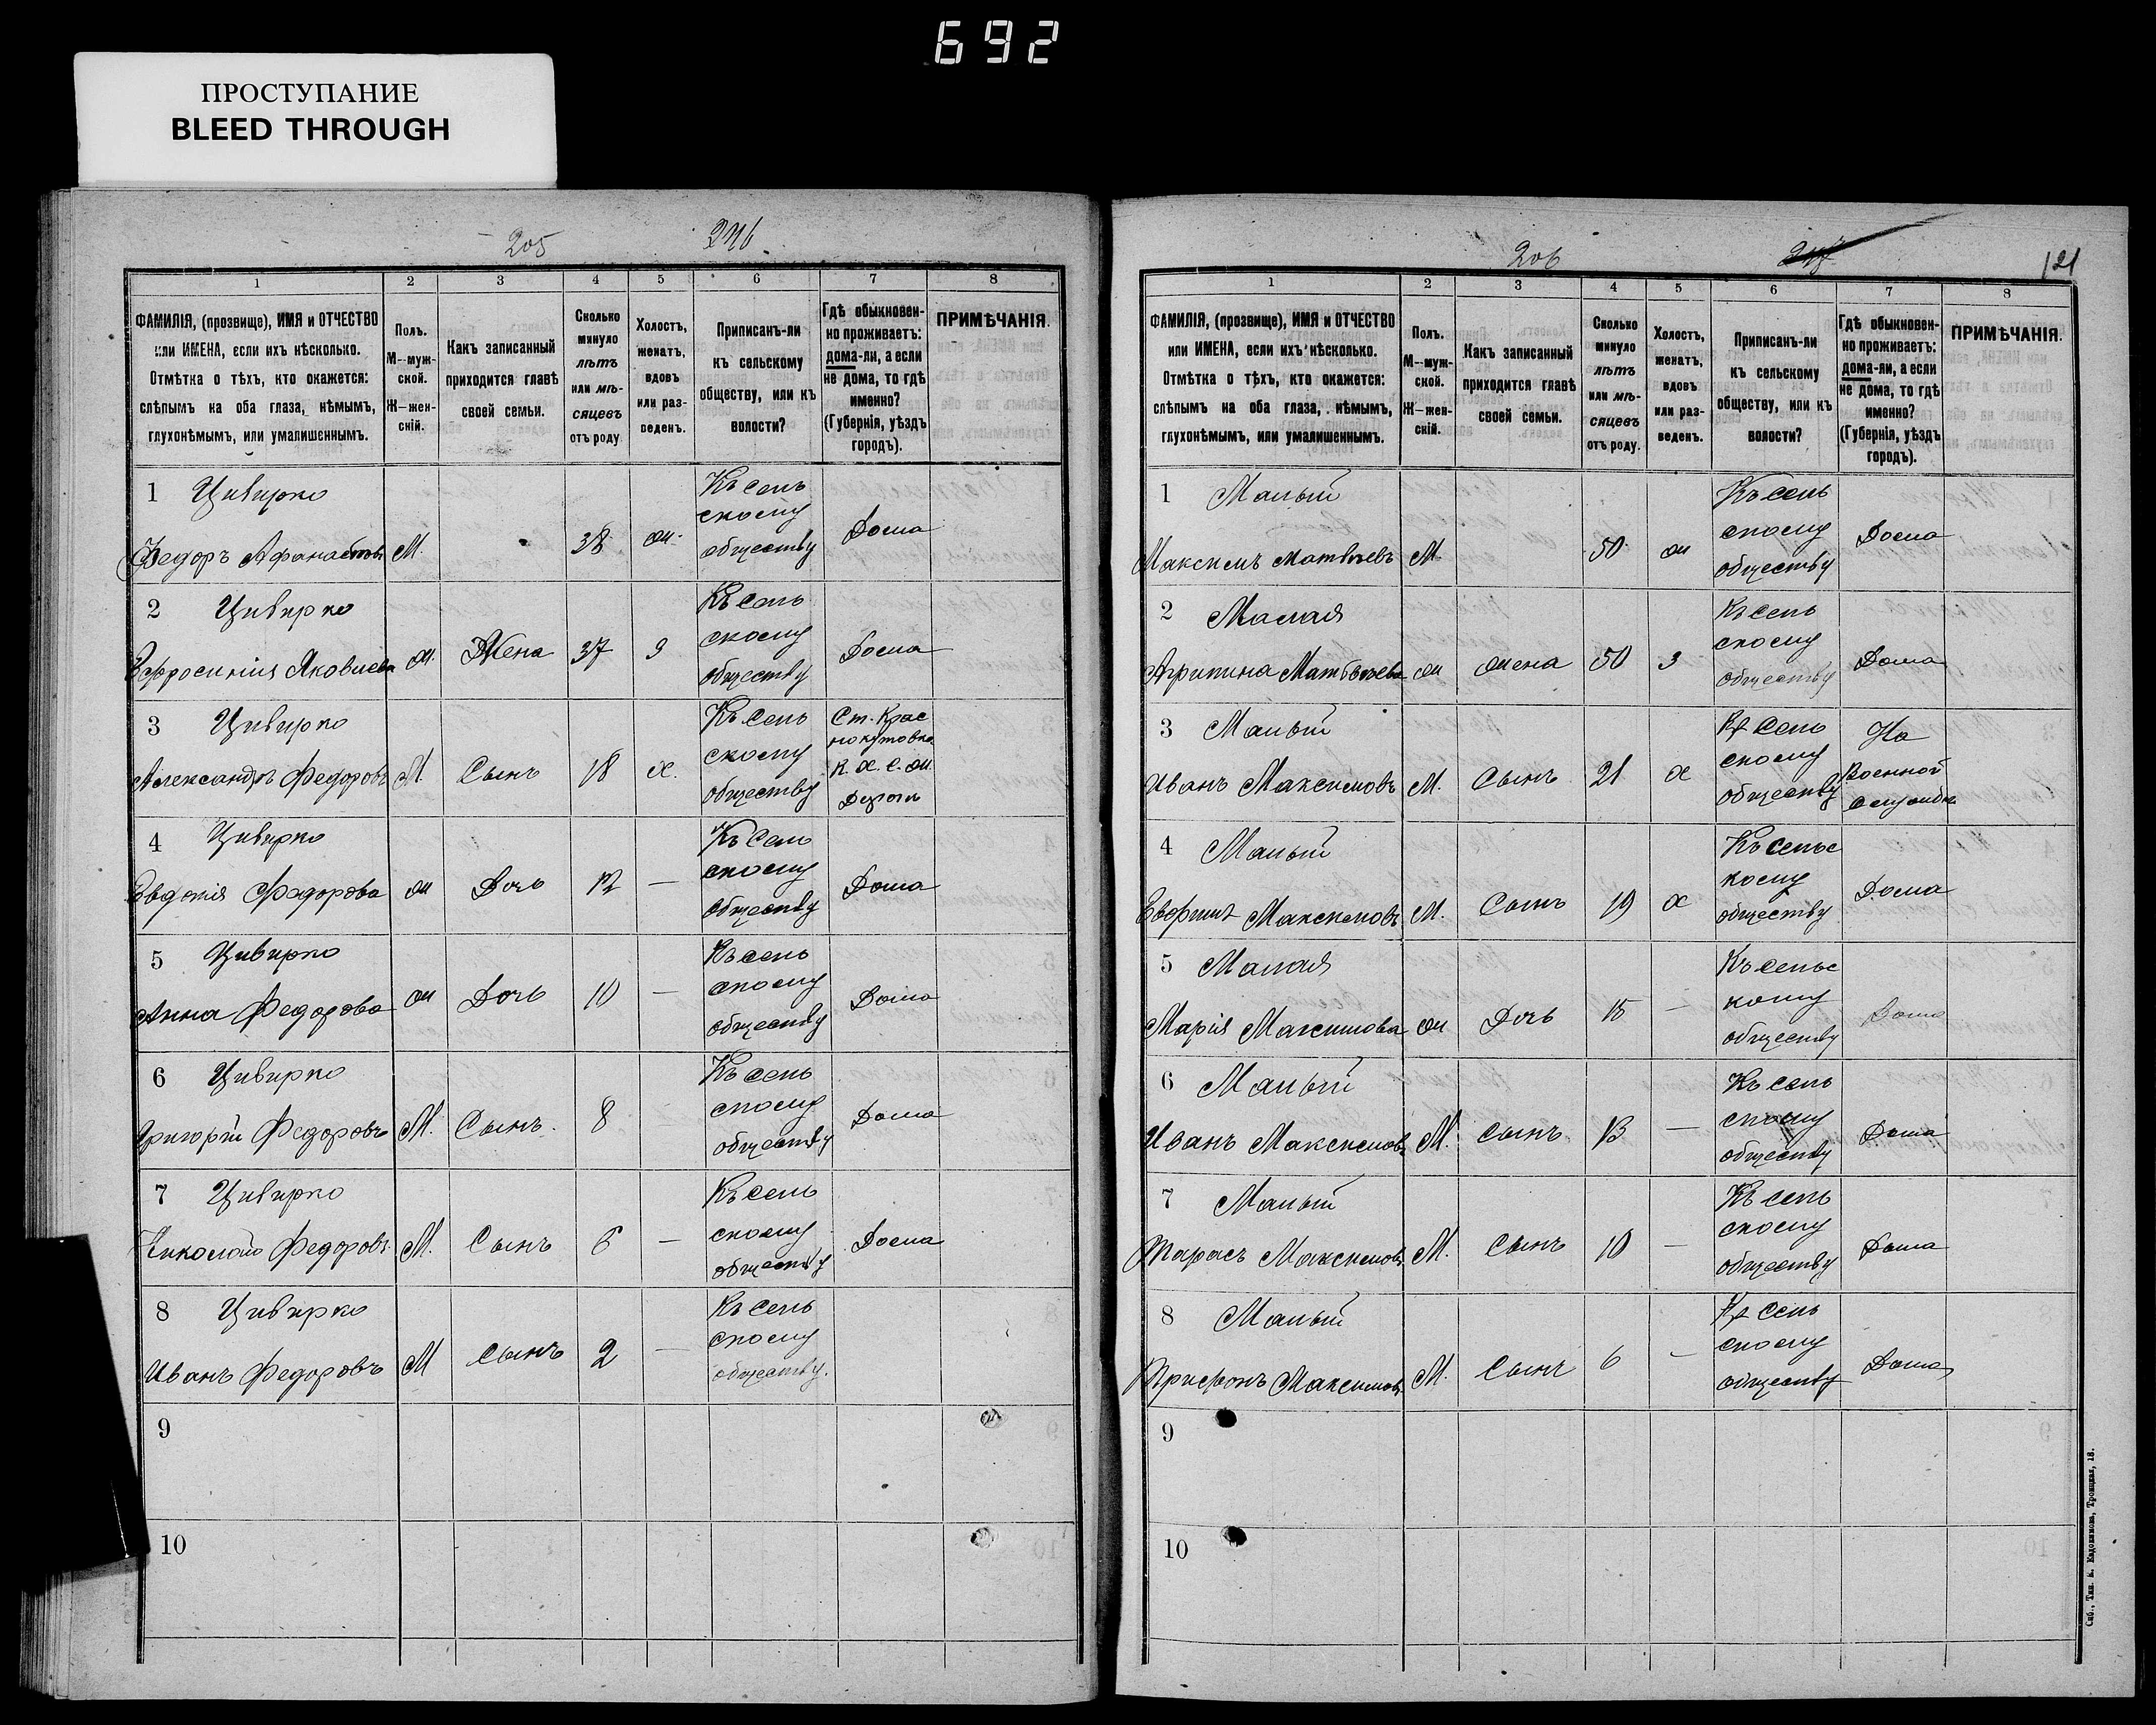 692
ПРОСТУПАНИЕ
BLEED THROUGH
205 246
1 2 3 4 5 6 7 8
ФАМИЛІЯ, (прозвище), ИМЯ и ОТЧЕСТВО или ИМЕНА, если ихъ нѣсколько. Отмѣтка о тѣхъ, кто окажется: слѣпымъ на оба глаза, нѣмымъ, глухонѣмымъ, или умалишеннымъ.
Полъ. М—мужской. Ж—женскій.
Какъ записанный приходится главѣ своей семьи.
Сколько минуло лѣтъ или мѣсяцевъ отъ роду
Холостъ, женатъ, вдовъ или разведенъ.
Приписанъ-ли къ сельскому обществу, или къ волости?
Гдѣ обыкновенно проживаетъ: дома-ли, а если не дома, то гдѣ именно? (Губернія, уѣздъ городъ).
ПРИМѢЧАНІЯ.
1 Цивирко
Федоръ Афанасьевъ М. 38 ж. Къ сельскому обществу Дома
2 Цивирко
Ефросинія Яковлева ж. Жена 37 З Къ сельскому обществу Дома
3 Цивирко
Александръ Федоровъ М. Сынъ 18 х. Къ сельскому обществу Ст. Краснокутовка К. Х. С. ж. Дороги
4 Цивирко
Евдокія Федорова ж Дочь 12 — Къ сельскому обществу Дома
5 Цивирко
Анна Федорова ж Дочь 10 — Къ сельскому обществу Дома
6 Цивирко
Григорій Федоровъ М. Сынъ. 8 Къ сельскому обществу Дома
7 Цивирко
Николай Федоровъ М. Сынъ 6 — Къ сельскому обществу Дома
8 Цивирко
Иванъ Федоровъ М Сынъ 2 — Къ сельскому обществу.
9
10
206 121
1 2 3 4 5 6 7 8
ФАМИЛІЯ, (прозвище), ИМЯ и ОТЧЕСТВО или ИМЕНА, если ихъ нѣсколько. Отмѣтка о тѣхъ, кто окажется: слѣпымъ на оба глаза, нѣмымъ, глухонѣмымъ, или умалишеннымъ.
Полъ. М—мужской. Ж—женскій.
Какъ записанный приходится главѣ своей семьи.
Сколько минуло лѣтъ или мѣсяцевъ отъ роду.
Холостъ, женатъ, вдовъ или разведенъ.
Приписанъ-ли къ сельскому обществу, или къ волости?
Гдѣ обыкновенно проживаетъ: дома-ли, а если не дома, то гдѣ именно? (Губернія, уѣздъ городъ).
ПРИМѢЧАНІЯ.
1 Малый
Максимъ Матвѣевъ М. 50 ж Къ сельскому обществу Дома
2 Малая
Агрипина Матвѣева ж жена 50 З Къ сельскому обществу Дома
3 Малый
Иванъ Максимовъ М. Сынъ 21 х Къ сельскому обществу На Военной службѣ
4 Малый
Максимовъ М. Сынъ 19 х Къ сельскому обществу Дома
5 Малая
Марія Максимова ж Дочь 15 — Къ сельскому обществу Дома
6 Малый
Иванъ Максимовъ М. Сынъ 13 — Къ сельскому обществу Дома
7 Малый
Тарасъ Максимовъ М. Сынъ 10 — Къ сельскому обществу Дома
8 Малый
Трифонъ Максимовъ М. Сынъ 6 — Къ сельскому обществу Дома
9
10